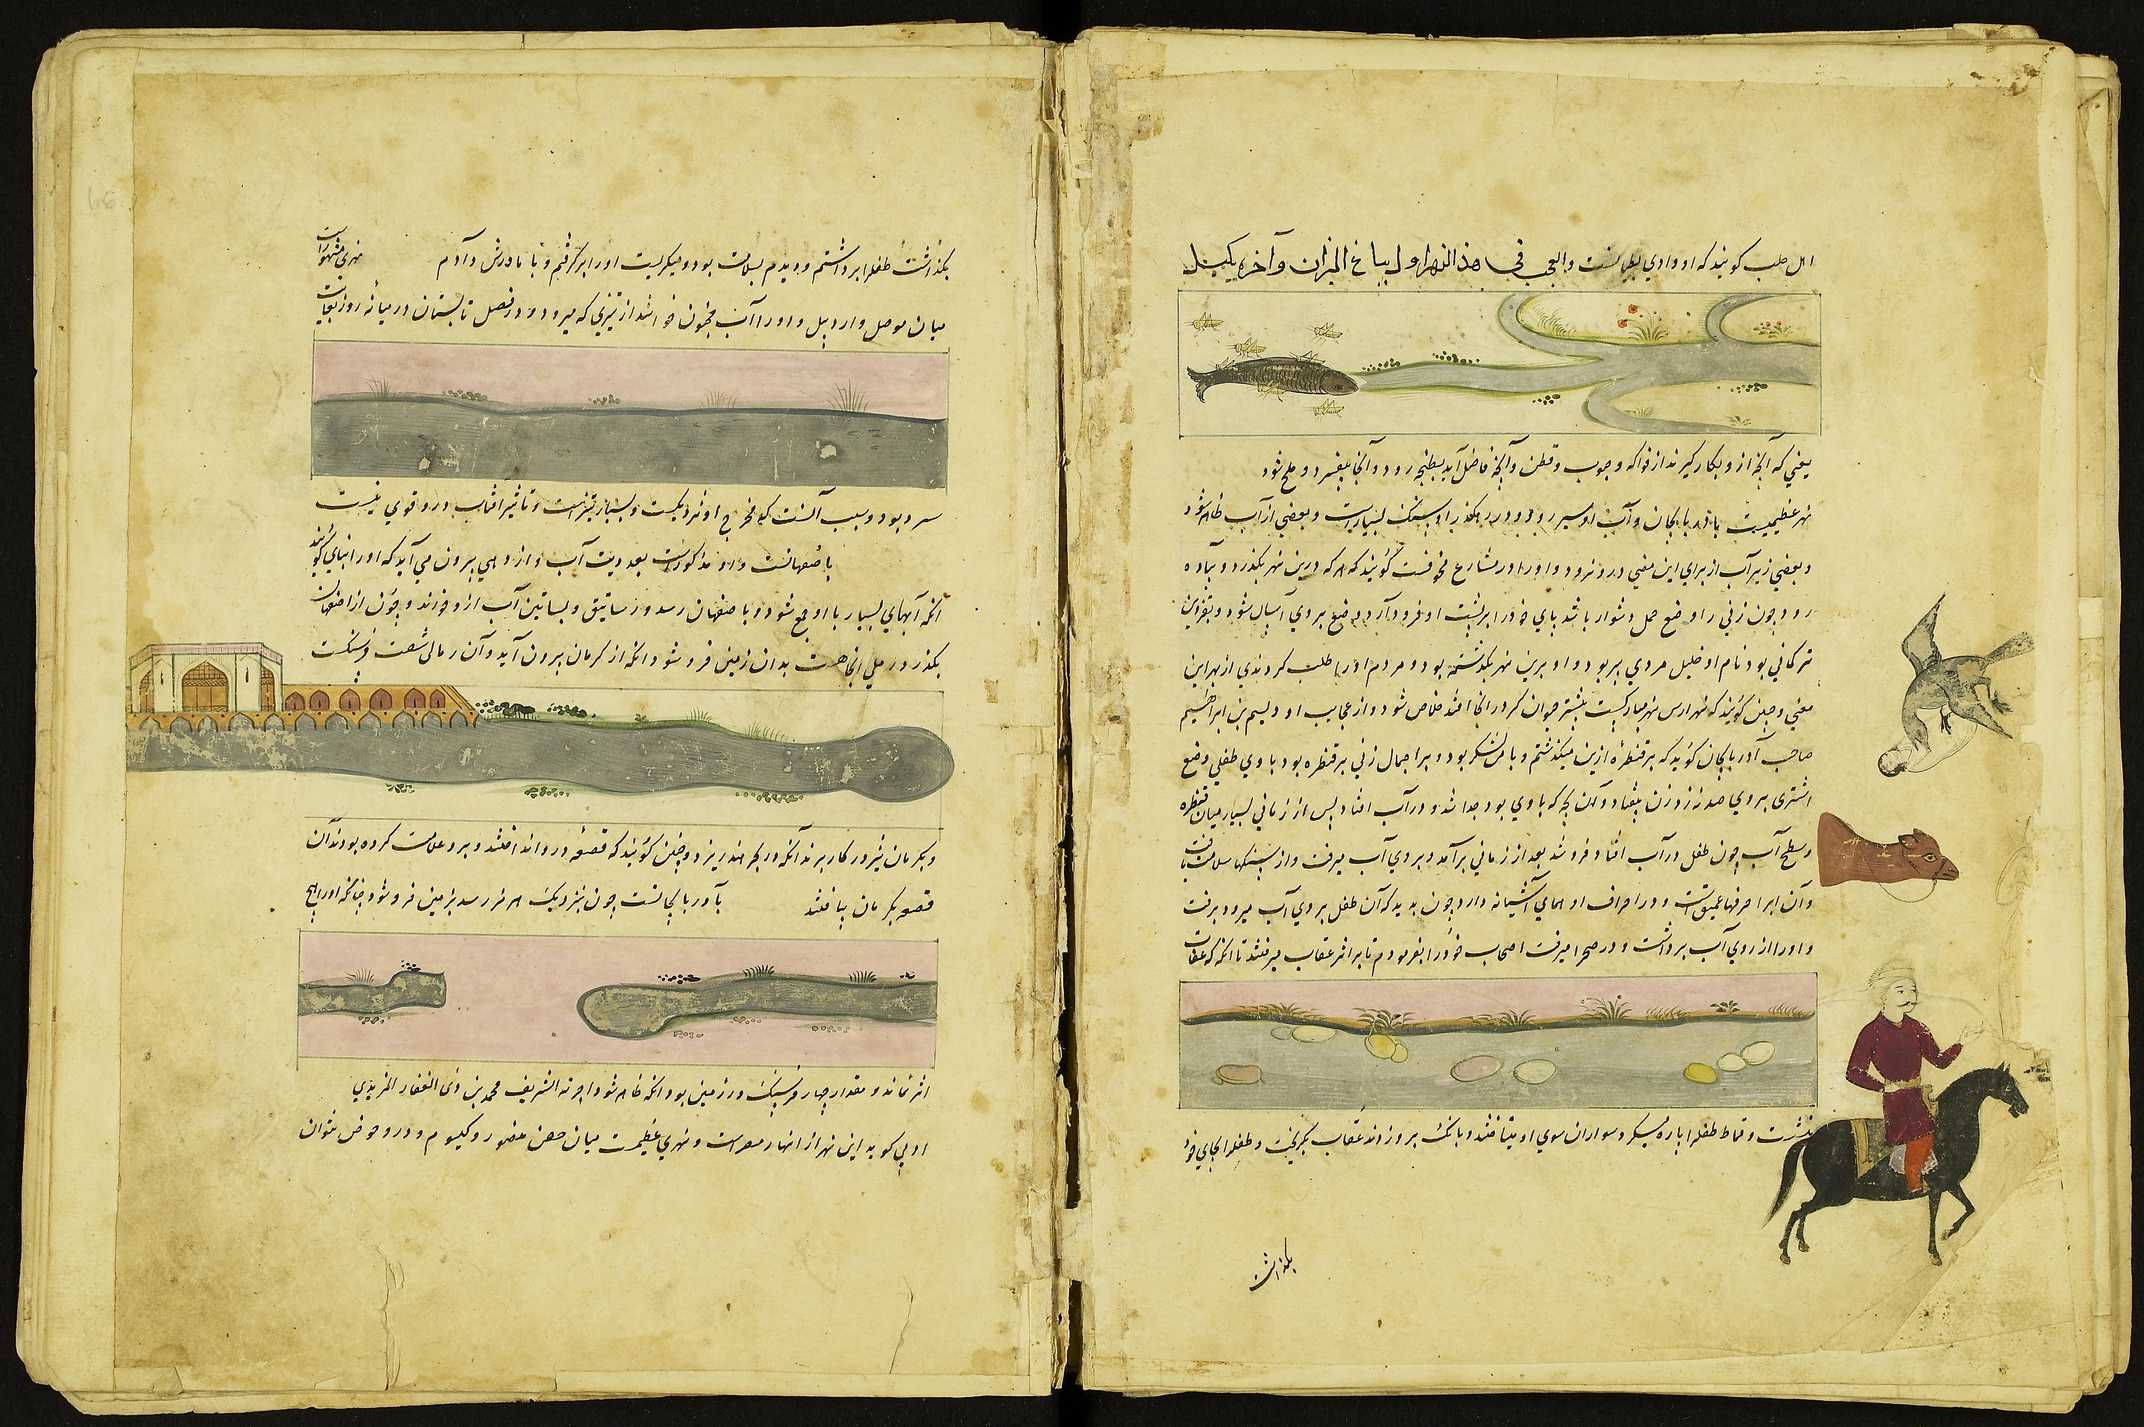 اهل حلب کویند که او وادی بطنانست والعجب فی هذا النهر اوله یباع المیزان وآخره بکیل
یعنی که آنچه از و بکار کیرند از فواکه وحبوب وقطن وآنچه فاضل آید ببطیحه رود وآنجا بیفسرد وملح شود
نهر عظیمیست باذربایجان وآب او سیر رود ودر رهکذر او سنک بسیارست وبعضی از آب ظاهر شود
وبعضی زیر آب از برای این معنی در و نرود واورا در مشارع مخوفست کویند که هر که درین نهر بکذرد وپیاده
رود چون زنی را وضع حمل دشوار باشد پای خودرا بر پشت او فرود آرد وضع بروی آسان شود وبقزوین
ترکمانی بود نام او خلیل مردی پیر بود واو برین نهر بکذشته بود ومردم اورا طلب کردندی از بهر این
معنی وچنین کویند که نهر ارس نهر مبارکیست بیشتر حیوان که در آنجا افتد خلاص شود واز عجایب او دیسم بن ابراهیم
صاحب آذربایجان کوید که بر قنطره ازین میکذشتم وبا من لشکر بود زنی بر قنطره بود با وی طفلی
اشتری بروی صدمه زد زن بیفتاد وآن بچه که با وی بود جدا شد ودر آب افتاد پس از زمانی بسیار میان قنطره
وسطح آب چون طفل در آب افتاد وفرو شد بعد از زمانی برآمد وبروی آب میرفت واز سنکها سلامت یافت
وآن را جرفها عمیقست ودر اجراف او همای آشیانه دارد چون بدید که آن طفل بروی آب میرود برفت
واورا از روی آب برداشت ودر صحرا میرفت اصحاب خودرا بفرمودم تا بر اثر عقاب میرفتند تا آنکه که عقاب
وقماط طفلرا پاره میکرد وسواران سوی او بشتافتند وبانک بروزدند عقاب بکریخت وطفلرا بجای خود
بکذاشت
بکذاشت طفلرا برداشتم ودیدم بسلامت بود ومیکریست اورا برکرفتم وبا مادرش دادم نهری مشهورست
میان موصل واردبیل واورا آب مجنون خوانند از تیزی که میرود ودر فصل تابستان در میانه روز بغایت
سرد بود وسبب آنست که مخرج او نزدیکست وبسیار تیزست وتاثیر افتاب درو قوی نیست
باصفهانست و مذکورست بعذوبت آب واز دهی بیرون می آید که اورا بنای کویند
آنکه آبهای بسیار با او جمع شود وباصفهان رسد ورساتیق وبساتین آب ازو خورند وچون از اصفهان
بکذرد رملی آنجا هست بدان زمین فرو شود آنکه از کرمان بیرون آید وآن رمالی شصت فرسنکست
وبکرمان نیز در کار برند آنکه در بحر هند ریزد وچنین کویند که قصعه درو انداختند وبرو علامت کرده بودند آن
قصعه بکرمان بیافتند بآذربایجانست چون بنزدیک مرند رسد بزمین فرو شود چنانکه اورا هیچ
اثر نماند ومقدار چهار فرسنک در زمین بود آنکه ظاهر شود اخبرنه الشریف محمد بن ذی الفقار المرندی
کوید این نهر از انهار مصرست ونهری عظیمست میان حصن منصور وکیسوم ودرو خوض نتوان